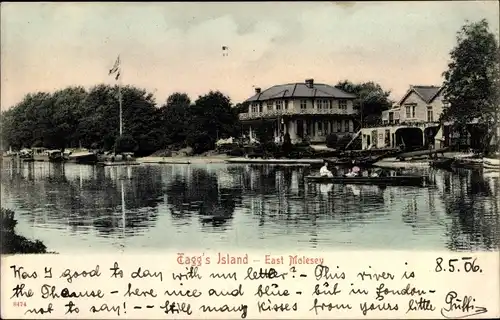 Tagg's Island — East Molesey.
8.5.06
Was I good to day with my letter? - This river is
the Thause - here nice and blue - but in London -
not to say! -- Still many kisses from yours little Puffi -
9474